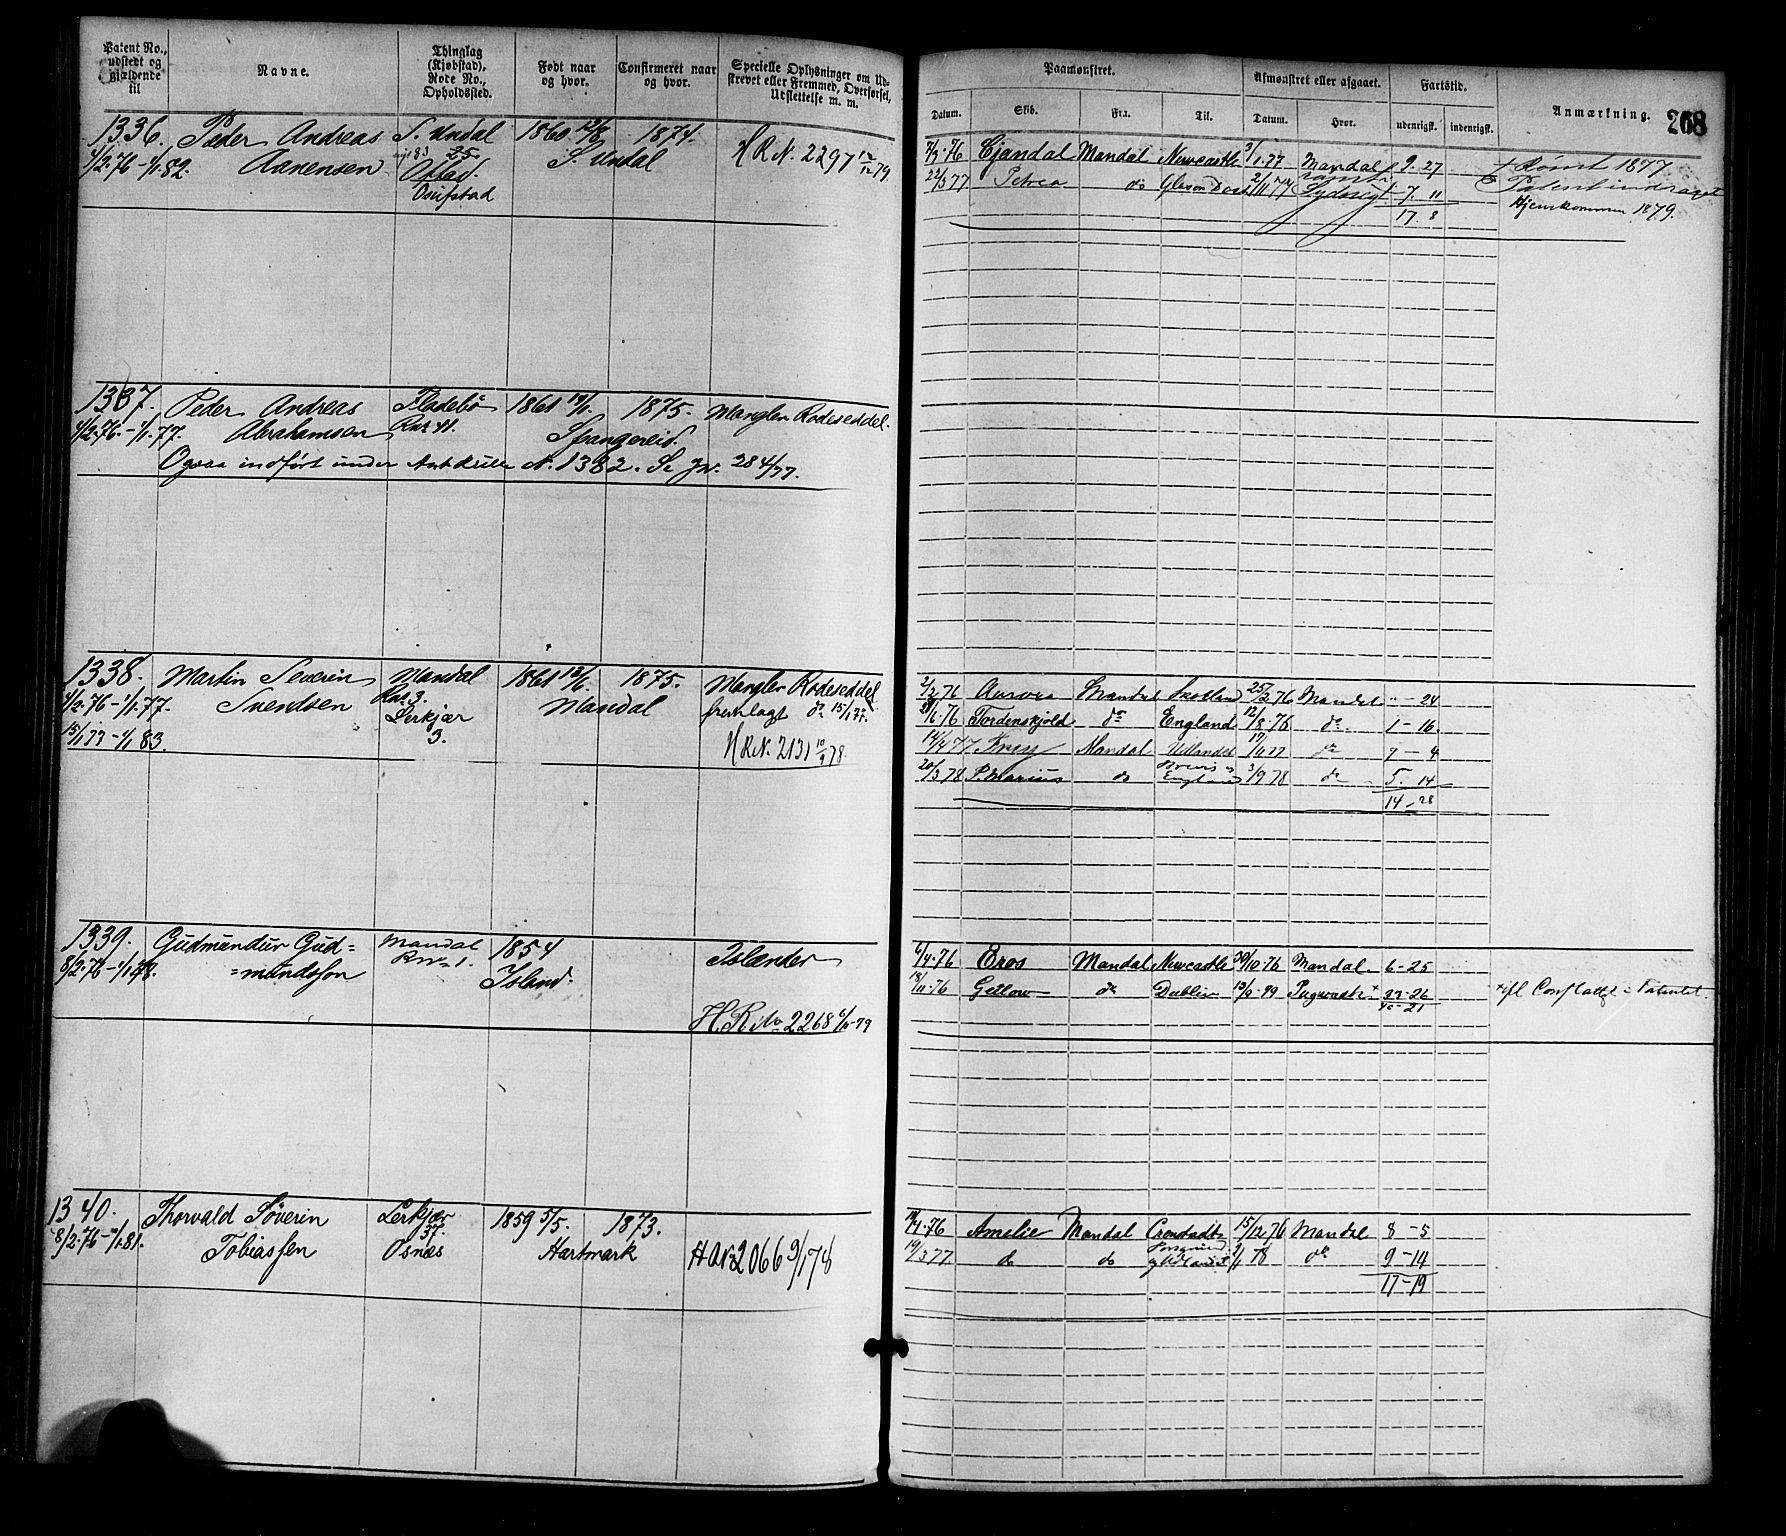 Patent No., udstedt og gjældende til
Navne.
Thinglag (Kjøbstad), Rode No., Opholdssted.
Født naar og hvor.
Confirmeret naar og hvor.
Specielle Oplysninger om Udskrevet eller Fremmed, Overførsel, Udslettelse m. m.
1336. Peder Andreas S. Undal 1860 12/8 1874.
4/2.76-1/1.82. Aanensen 25. S. Undal H R N. 2297 79
Osufstad
1337. Peder Andreas 1861 1875. Mangler Rodeseddel.
4/2.76.-1/1.77. Abrahamsen Rnr 41. Spangereid.
Ogsaa indført under N. 1382. 28 4/77.
1338. Martin Severin Mandal 1861 12/6. 1875. Mangler Rodeseddel
4/2.76-1/1.77. Svendsen Rno 3. Mandal fremlagt do 15/1 77.
15/1 77-1/1 83. Lerkjær
3. H R N. 2131 10/9 78
1339. Gudmundur Gud= Mandal 1854 Islænder
8/2.76-1/1.78. =mundsson Island.
H. R. No 2268 79
1340. Thorvald Søverin Lerkjær 1859 5/5. 1873.
8/2.76-1/1.81. Tobiassen 37. Hartmark
Osnes
Paamønstret.
Afmønstret eller afgaaet.
Fartstid.
Anmærkning.
268
Datum. Skib. Fra. Til. Datum. Hvor. udenrigsk. indenrigsk.
76 Ejendal Mandal Newcastle 3/1.77 Mandal 9. 27 + Rømt 1877
22/3 77 Petrea do 7. 11 Patent inddraget
17. 8 Hjemkommen 1879.
2/2 76 Aurora Mandal Skotland 25/2 76 Mandal " - 24
76 Tordenskjold do England 12/8 76 do 1 - 16.
14/4 77 Mandal Udlandet 77 do 7 - 4
20/3 78 P. Marius do England 3/9 78 do 5. 14
14 - 28
6/4.76 Eros Mandal Newcastle 30/10.76 Mandal 6 - 25
18/11.76 do Dublin 33 - 26
40 - 21
76 Amelie Mandal Cronstadt 15/12 76 Mandal 8 - 5
19/3 77 do do Udlandet 2/1 78 do 9 - 14
17 - 19